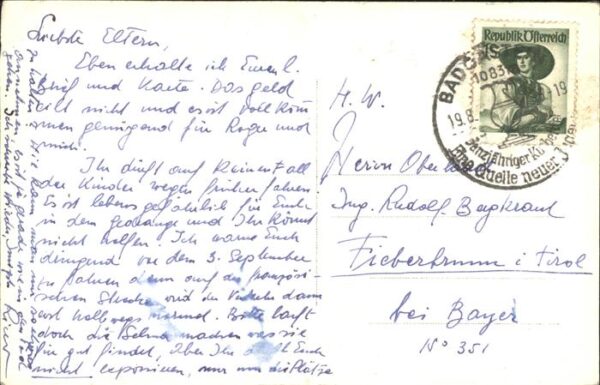 Liebste Eltern,
Eben erhalte ich Euren l.
Brief und Karte. Das Geld
eilt nicht und es ist vollkom
men genügend für Roger und
mich.
Ihr dürft auf keinen Fall
der Kinder wegen früher fahren
Es ist lebensgefährlich für Euch
in dem Gedränge und Ihr könnt
nicht helfen. Ich warne Euch
dringend vor dem 3. September
zu fahren denn auf der französi-
schen Strecke wird der Verkehr dann
erst halbwegs normal. Bitte lasst
doch die Selma machen was sie
für gut findet, Aber Ihr dürft Euch
nicht exponieren, nur um die Plätze
zu halten. Hie kann man
gehen. Ich
Republik Österreich
BAD
19.8.
Eine Quelle neuer
H. W.
Herrn
Ing. Rudolf Bergkraut
Fieberbrunn i Tirol
bei Bayer
No 351